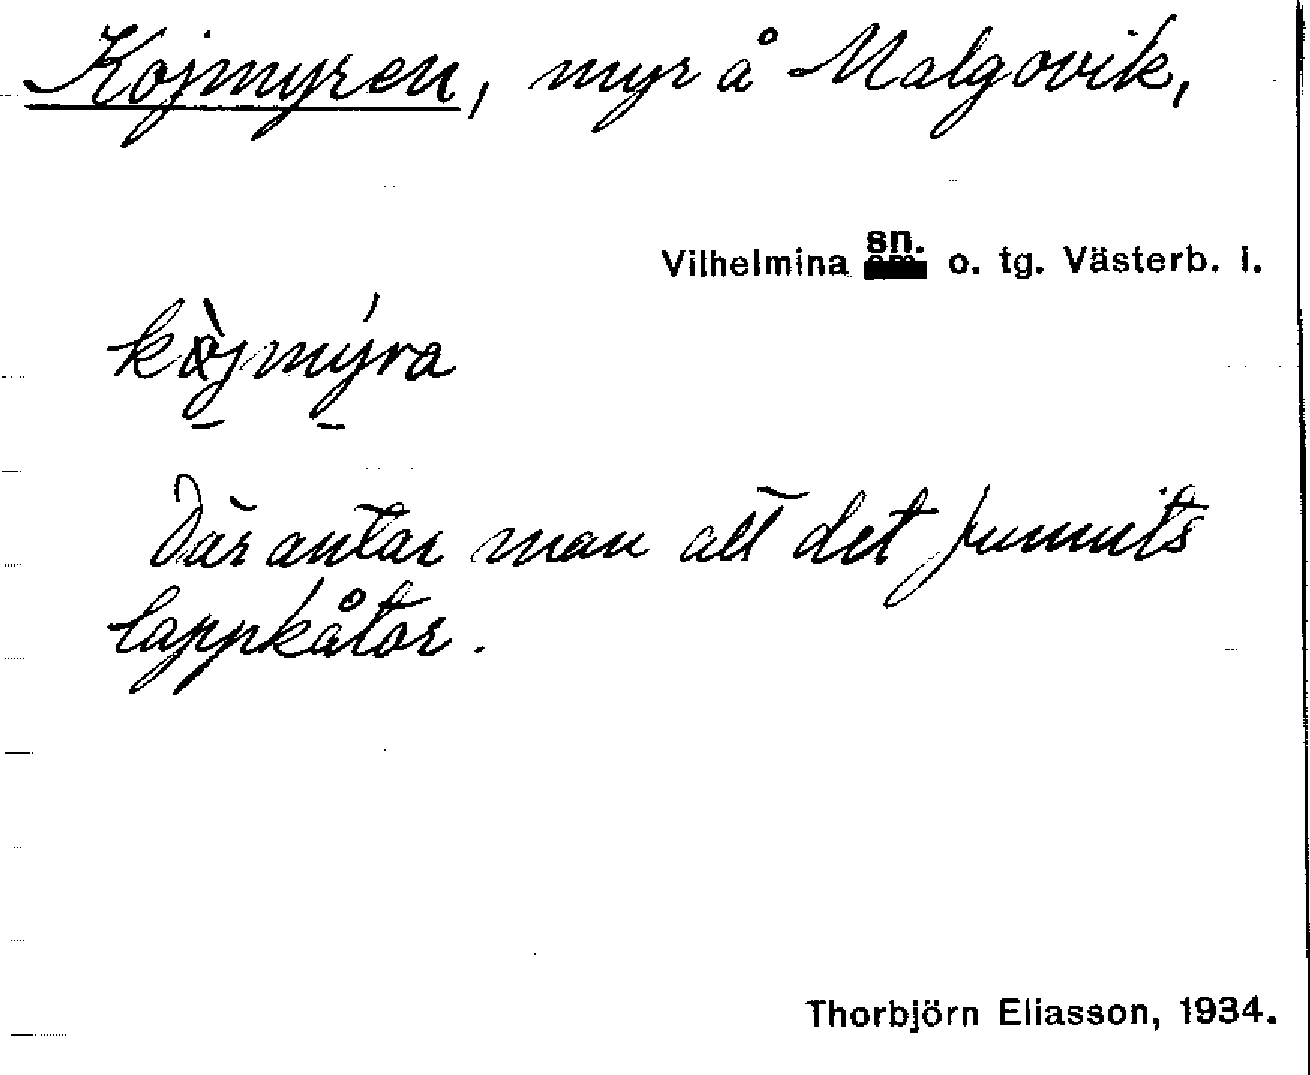 Kojmyren, myr å Malgovik,
Vilhelmina sn. o. tg. Västerb. l.
kòjmýra
Där antar man att det funnits
lappkåtor.
Thorbjörn Eliasson, 1934.